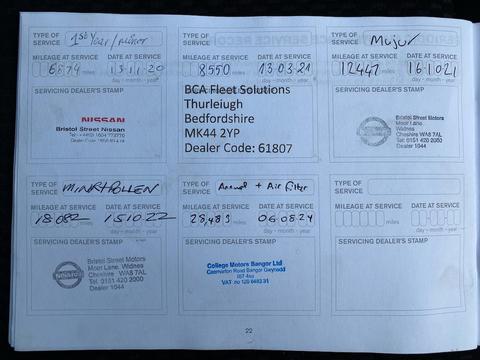 TYPE OF SERVICE 1st Year/minor
MILEAGE AT SERVICE DATE AT SERVICE
6874 miles 13 11 20
day - month - year
SERVICING DEALER'S STAMP
NISSAN
Bristol Street Nissan
8550 miles 13 03 21
BCA Fleet Solutions
Thurleigh
Bedfordshire
MK44 2YP
Dealer Code: 61807
TYPE OF SERVICE Major
MILEAGE AT SERVICE DATE AT SERVICE
12447 miles 16 10 21
day - month - year
SERVICING DEALER'S STAMP
NISSAN
Bristol Street Motors
Moor Lane, Widnes
Cheshire WA8 7AL
Tel: 0151 420 2000
Dealer 1044
TYPE OF SERVICE MINOR+POLLEN
MILEAGE AT SERVICE DATE AT SERVICE
18,082 15 10 22
day - month - year
SERVICING DEALER'S STAMP
NISSAN
Bristol Street Motors
Moor Lane, Widnes
Cheshire WA8 7AL
Tel: 0151 420 2000
Dealer 1044
TYPE OF SERVICE Annual + Air Filter
MILEAGE AT SERVICE DATE AT SERVICE
28,483 miles 06 08 24
day - month - year
SERVICING DEALER'S STAMP
College Motors Bangor Ltd
Caernarfon Road Bangor Gwynedd
TYPE OF SERVICE
MILEAGE AT SERVICE DATE AT SERVICE
miles
day - month - year
SERVICING DEALER'S STAMP
22